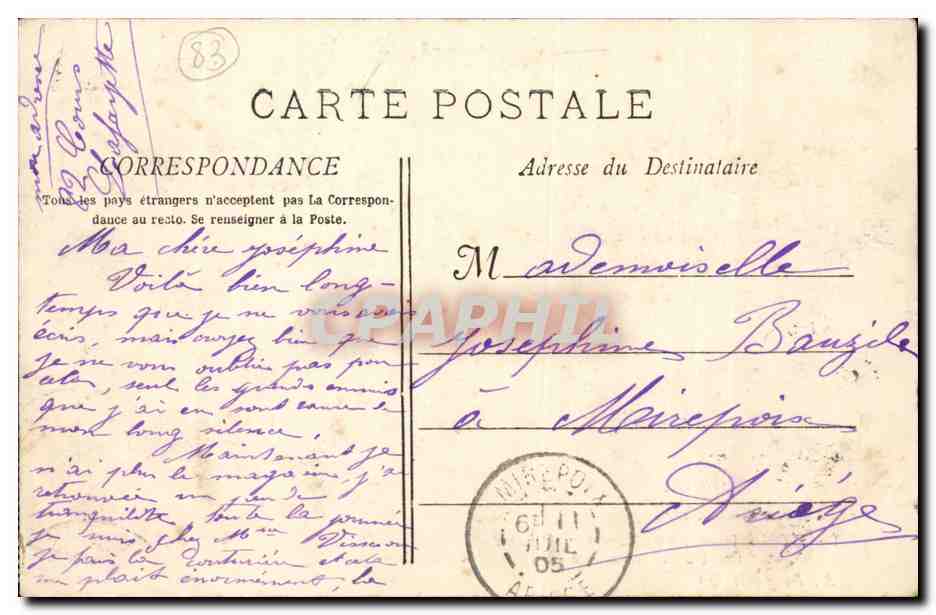 83
mon adresse
92 Cours
Lafayette
CARTE POSTALE
CORRESPONDANCE
Tous les pays étrangers n'acceptent pas La Correspon-
dance au recto. Se renseigner à la Poste.
Adresse du Destinataire
Ma chère Joséphine
Voilà bien long-
temps que je ne vous avais
écris, mais croyez bien que
je ne vous oublies pas pour
cela, seul les grands ennuis
que j'ai eu sont cause de
mon long silence,
Maintenant je
n'ai plus le magasin, j'ai
retrouvée un peu de
tranquilité toute la journée
je suis chez Mme
je fais la couturière cela
me plait énormément, la
Mademoiselle
Joséphine Bauzile
à Mirepoix
Ariége
MIREPOIX
6 11
JUIL
05
ARIEGE
CPAPHIL